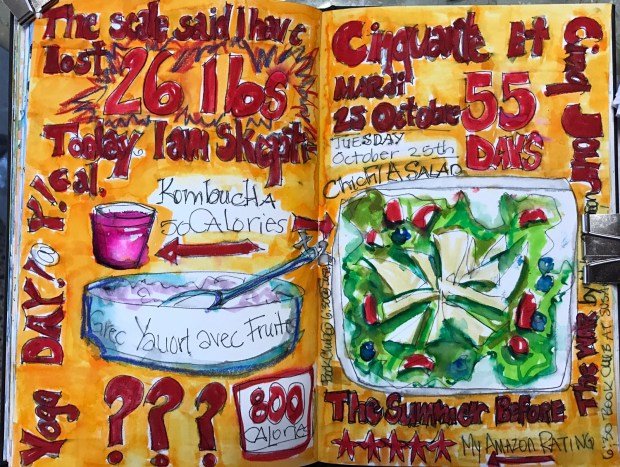 The scale said I have
lost
26 lbs
Today I am Skepti
cal.
Yoga DAY!@ Y!
Kombucha
50 CALories
Grec Yaourt avec Fruite
???
800
CALories
Cinquante Et
Cinq Jour
MARDi
25 Octobre
55
DAYS
TUESDAY
October 25th
Chichi A SALAD
The Summer Before
The War by
6:30 BOOK CLUB AT
My Amazon RATING